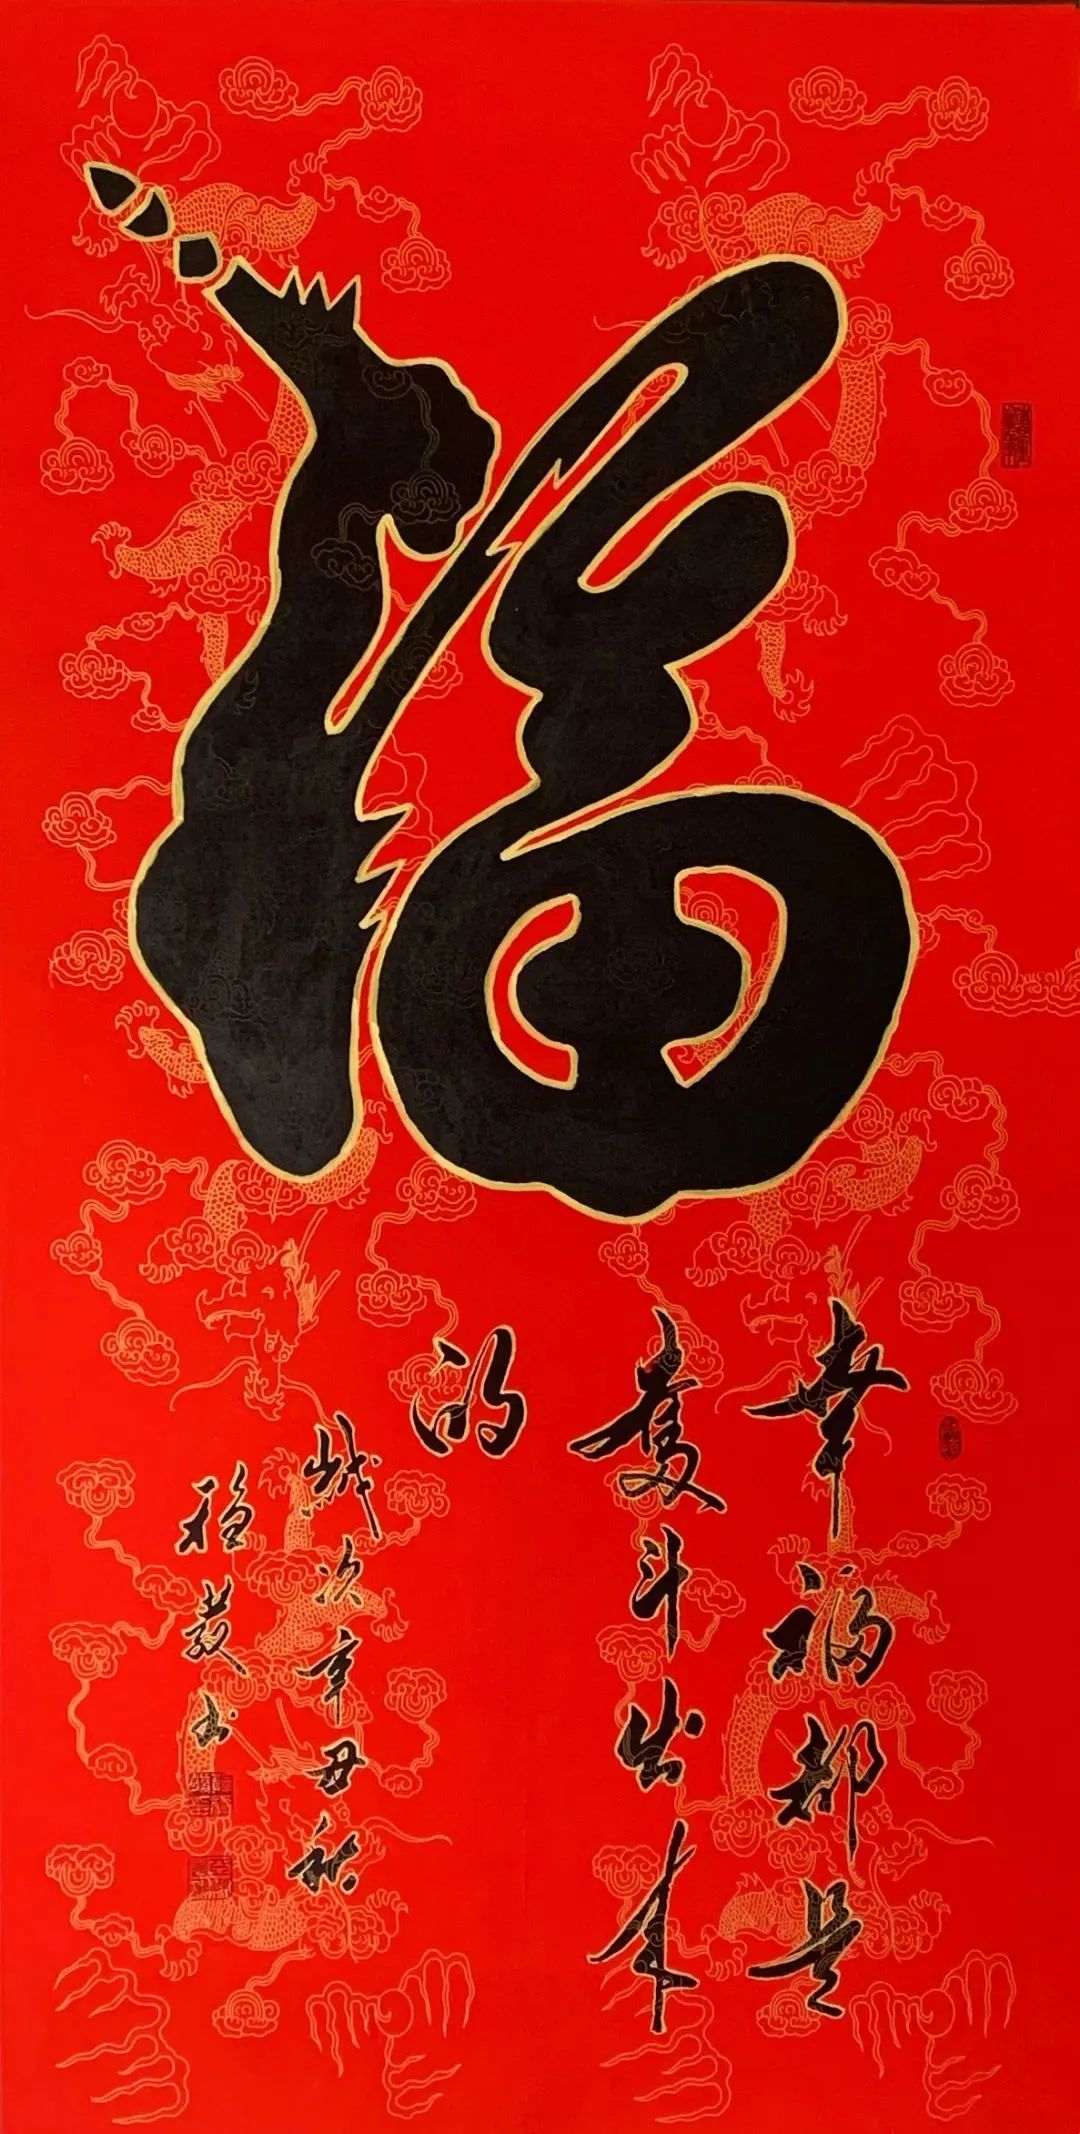 福
幸福都是
奮斗出来
的
岁次辛丑秋
稳教书